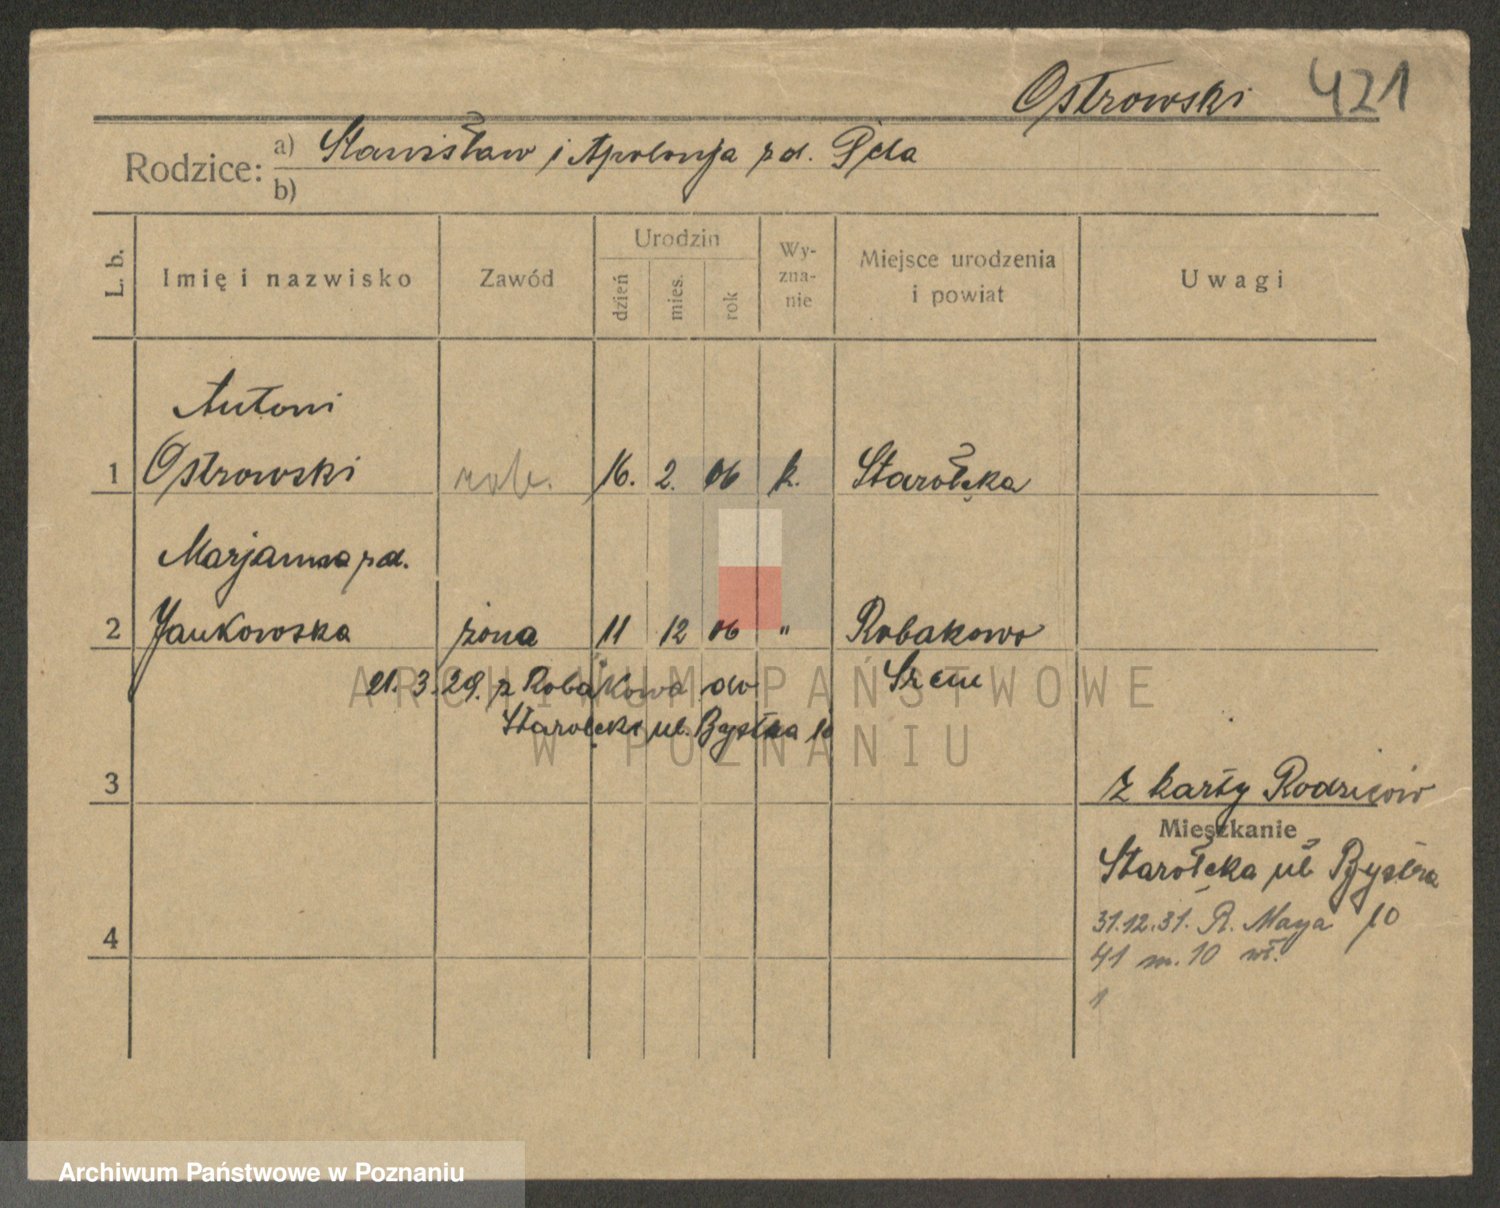 Ostrowski 421
Rodzice: a) Stanisław i Apolonja zd. Pela
b)
L. b. Imię i nazwisko Zawód Urodzin dzień mies. rok Wyznanie Miejsce urodzenia i powiat Uwagi
Antoni
1 Ostrowski rob. 16. 2. 06 k. Starołęka
Marjanna zd.
2 Jankowska żona 11 12 06 " Robakowo
21.3.29. z Robakowa do Śrem
Starołęki ul. Bystra 10
3 z karty Rodziców
Mieszkanie
Starołęka ul. Bystra
10
31.12.31. R. Maya
4 41 m. 10 wł.
1
ARCHIWUM PAŃSTWOWE
W POZNANIU
Archiwum Państwowe w Poznaniu